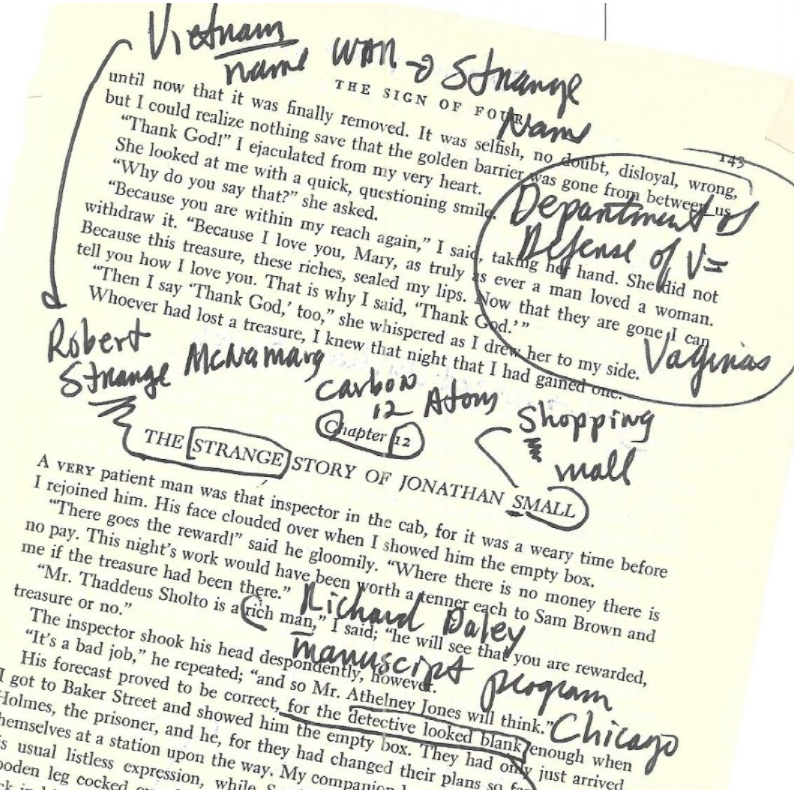 Vietnam
name War → Strange
Name
THE SIGN OF FOUR
143
until now that it was finally removed. It was selfish, no doubt, disloyal, wrong,
but I could realize nothing save that the golden barrier was gone from between us.
"Thank God!" I ejaculated from my very heart.
She looked at me with a quick, questioning smile.
"Why do you say that?" she asked.
"Because you are within my reach again," I said, taking her hand. She did not
withdraw it. "Because I love you, Mary, as truly as ever a man loved a woman.
Because this treasure, these riches, sealed my lips. Now that they are gone I can
tell you how I love you. That is why I said, 'Thank God.'"
"Then I say 'Thank God,' too," she whispered as I drew her to my side.
Whoever had lost a treasure, I knew that night that I had gained one.
Department of
Defense of V=
Vaginas
Robert
Strange McNamara
Carbon
12 Atom
Shopping
mall
Chapter 12
THE STRANGE STORY OF JONATHAN SMALL
A VERY patient man was that inspector in the cab, for it was a weary time before
I rejoined him. His face clouded over when I showed him the empty box.
"There goes the reward!" said he gloomily. "Where there is no money there is
no pay. This night's work would have been worth a tenner each to Sam Brown and
me if the treasure had been there."
"Mr. Thaddeus Sholto is a rich man," I said; "he will see that you are rewarded,
treasure or no."
Richard Daley
manuscript program
Chicago
The inspector shook his head despondently, however.
"It's a bad job," he repeated; "and so Mr. Athelney Jones will think."
His forecast proved to be correct, for the detective looked blank enough when
I got to Baker Street and showed him the empty box. They had only just arrived
Holmes, the prisoner, and he, for they had changed their plans so far
themselves at a station upon the way. My companion
usual listless expression, while
wooden leg cocked